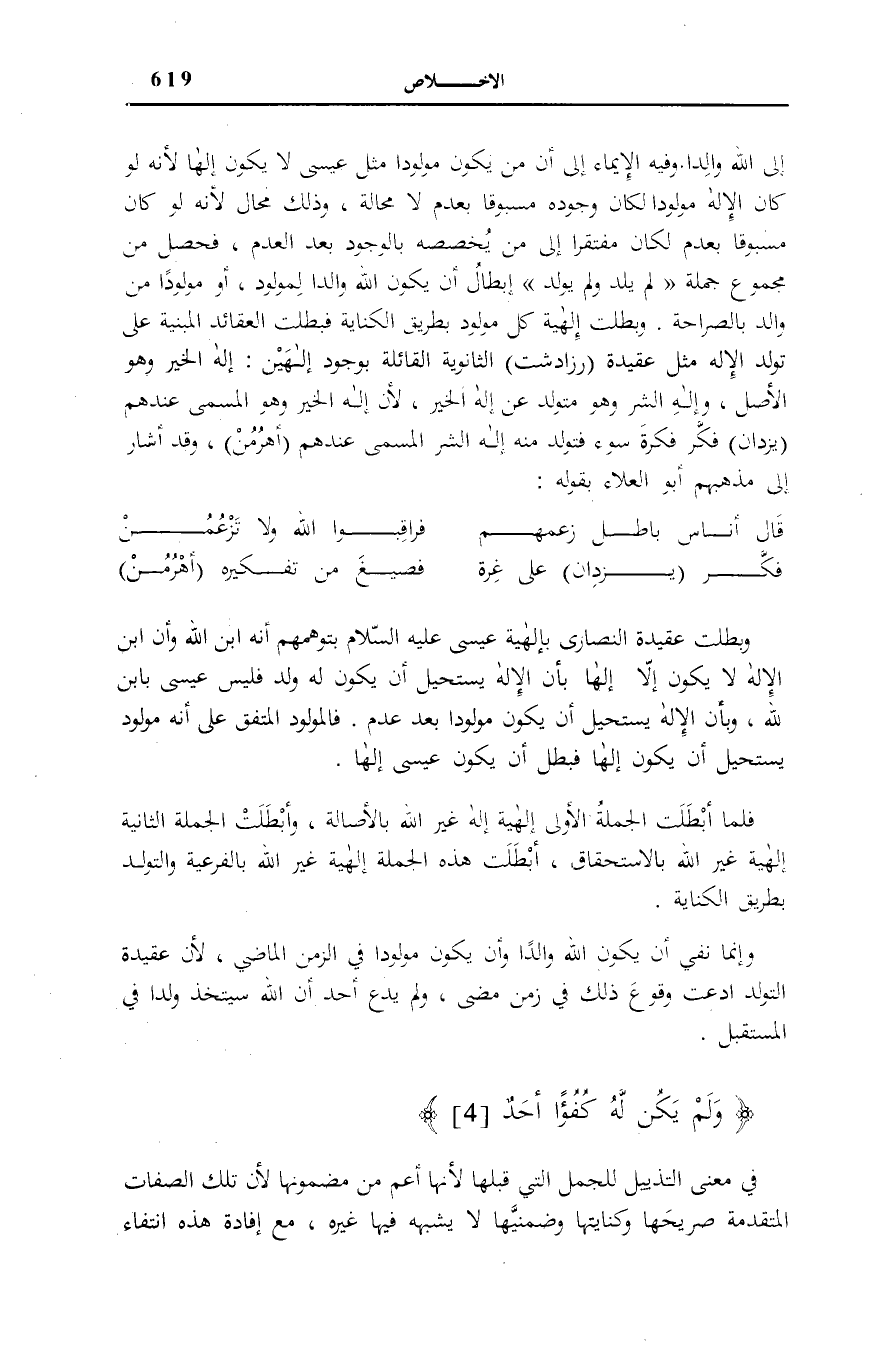 الاخـــــلاص
619
إلى الله والِدا.وفيه الإيماء إلى أن من يكون مولودا مثل عيسى لا يكون إلٰها لأنه لو
كان الإلٰه مولودا لكان وجوده مسبوقا بعدم لا محالة ، وذلك محال لأنه لو كان
مسبوقا بعدم لكان مفتقرا إلى من يُخصصه بالوجود بعد العدم ، فحصل من
مجموع جملة « لم يلد ولم يولد » إبطالُ أن يكون الله والدا لِمولود ، أو مولودًا من
والد بالصراحة . وبطلت إلٰهية كل مولود بطريق الكناية فبطلت العقائد المبنية على
تولد الإله مثل عقيدة (رزادشت) الثانوية القائلة بوجود إلـٰهَيْن : إلهُ الخير وهو
الأصل ، وإلـٰهِ الشر وهو متولد عن إلهُ الخير ، لأن إلـٰه الخير وهو المسمى عندهم
(يزدان) فكَّر فكرةَ سوء فتولد منه إلـٰه الشر المسمى عندهم (أهرُمُنْ) ، وقد أشار
إلى مذهبهم أبو العلاء بقوله :
قَال أنـــاس باطـــل زعمهـــم فراقِبـــوا الله ولا تَزْعُمُـــنْ
فكَّـــر (يـــزدان) على غِرة فصيـــغَ من تفـــكيره (أهْرُمُـــنْ)
وبطلت عقيدة النصارى بإلٰهية عيسى عليه السّلام بتوهمهم أنه ابن الله وأن ابن
الإلهُ لا يكون إلّا إلٰها بأن الإلهُ يستحيل أن يكون له ولد فليس عيسى بابن
لله ، وبأن الإلهُ يستحيل أن يكون مولودا بعد عدم . فالمولود المتفق على أنه مولود
يستحيل أن يكون إلٰها فبطل أن يكون عيسى إلٰها .
فلما أبْطَلَت الجملةُ الأولى إلٰهية إلهُ غير الله بالأصالة ، وأبْطَلَتْ الجملة الثانية
إلٰهية غير الله بالاستحقاق ، أبْطَلَت هذه الجملة إلٰهية غير الله بالفرعية والتولـد
بطريق الكناية .
وإنما نفي أن يكون الله والدًا وأن يكون مولودا في الزمن الماضي ، لأن عقيدة
التولد ادعت وقوعَ ذلك في زمن مضى ، ولم يدع أحد أن الله سيتخذ ولدا في
المستقبل .
﴿ وَلَمْ يَكُن لَّهُ كُفُؤًا أحَدٌ [4] ﴾
في معنى التذييل للجمل التي قبلها لأنها أعم من مضمونها لأن تلك الصفات
المتقدمة صريحَها وكنايتها وضمنيَّها لا يشبهه فيها غيره ، مع إفادة هذه انتفاء